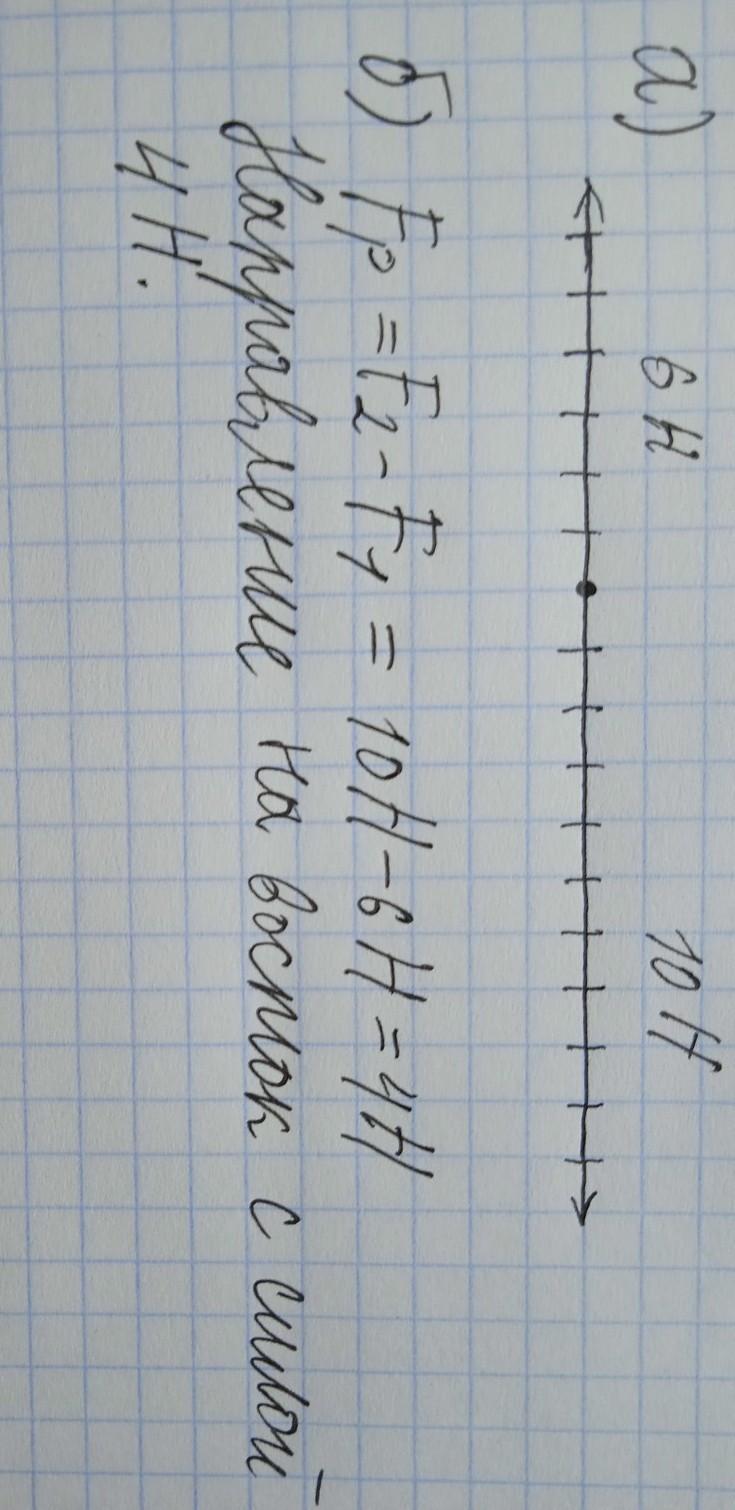 а)
6 Н 10 Н
б) Fр = F2 - F1 = 10 Н - 6 Н = 4 Н
Направление на восток с силой
4 Н.